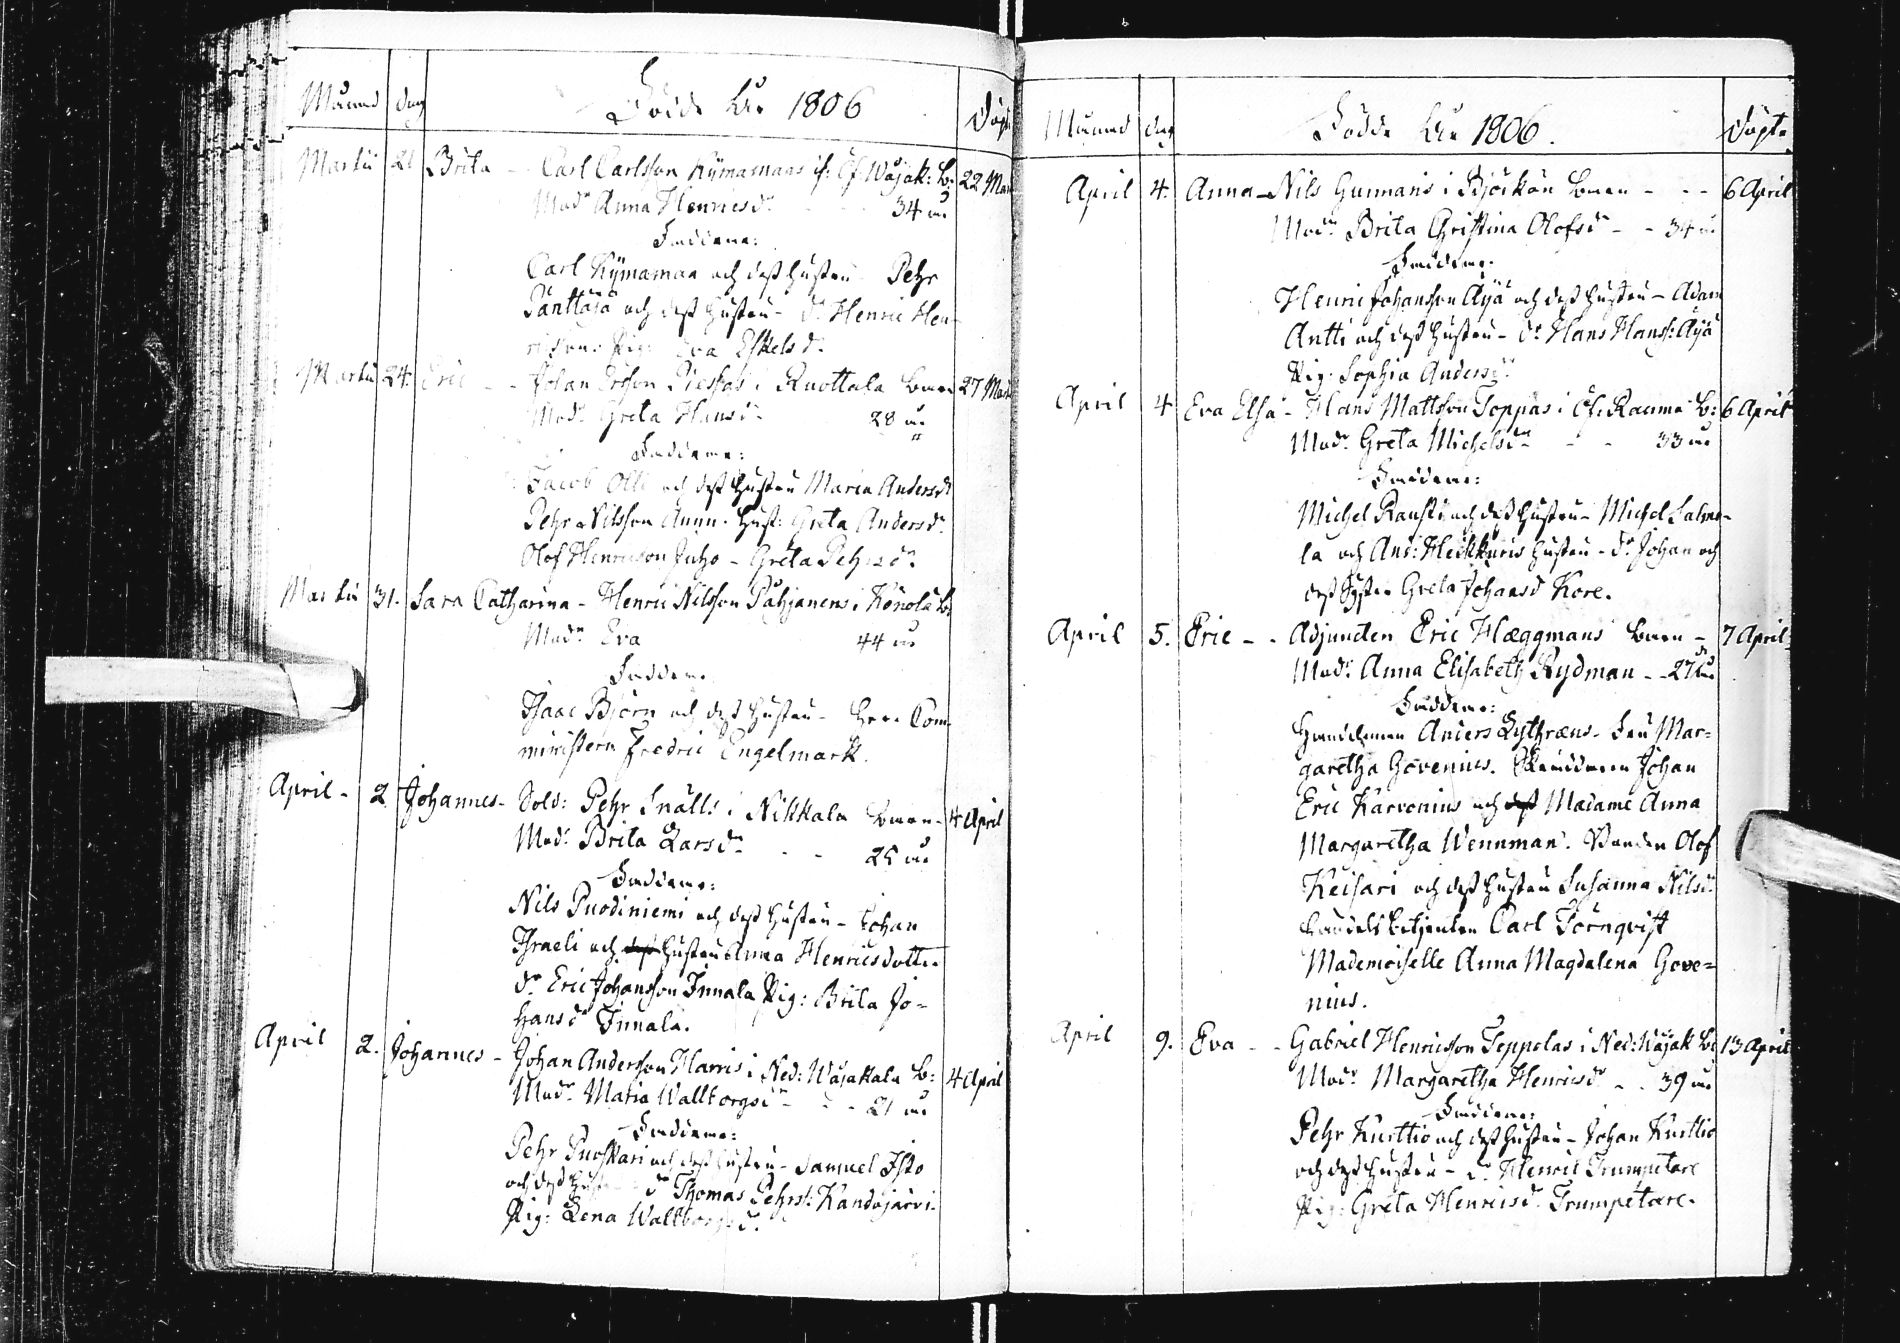 Månad dag Födde År 1806 Döpte
Martii 21 Brita - Carl Carlsson Kymamaas i Öf: Wojak: b: 22 Mar
Mod:r Anna Henricsd:r - - 34 år
Faddrar:
Carl Kymamaa och dess hustru Pehr
Pänttäjä och dess hustru - d:r Henric Hen-
ricsson Pig: Eva Eskelsd:r
Martii 24. Eric - - Johan Ersson Pieskas i Ruottala barn 27 Mar
Mod:r Greta Hansd:r 28 år
Faddrar:
Jacob Olli och dess hustru Maria Andersd:r
Pehr Nilsson Hust: Greta Andersd:r
Olof Henricsson Juho - Greta Pehrsd:r
Martii 31. Sara Catharina - Henric Nilsson Pahjanens i Könölä b:
Mod:r Eva 44 år
Faddrar
Isaac Björn och dess hustru - Herr Com-
ministern Fredric Engelmark.
April - 2 Johannes - Sold: Pehr Snälls i Nikkala barn - 4 April
Mod:r Brita Larsd:r - - 25 år
Faddrar:
Nils Puodiniemi och dess hustru - Johan
Israeli och dess hustru Anna Henricsdotter
d:r Eric Johansson Innala Pig: Brita Jo-
hansd:r Innala.
April 2. Johannes - Johan Andersson Harris i Ned: Wojakala b: 4 April
Mod:r Maria Wallborgsd:r - - - 21 år
Faddrar:
Pehr Puoskari och dess hustru - Samuel Isto
och dess hust d:r Thomas Pehrss: Kandojärvi
Pig: Lena Wallborgsd:r
Månad dag Födde År 1806. Döpte
April 4. Anna - Nils Gunnaris i Björkön barn - - - 6 April
Mod:r Brita Christina Olofsd:r - - 34 år
Faddrar:
Henric Johansson Äijä och dess hustru - Adam
Antti och dess hustru - d:r Hans Hanss: Äijä
Pig: Sophia Andersd:r
April 4 Eva Elsa - Hans Mattsson Toppas i Öf: Raumo b: 6 April
Mod:r Greta Michelsd:r - - - 33 år
Faddrar:
Michel Rauski och dess hustru - Michel Salme-
la och And: Heikkuris hustru - d:r Johan och
dess Syster Greta Johansd Kore.
April 5. Eric - - Adjuncten Eric Hæggmans barn - 7 April
Mod:r Anna Elisabeth Rydman - - 27 år
Faddrar:
Handelsman Anders Lythræus - Fru Mar-
garetha Govenius. Johan
Eric Karvonius och dess Madame Anna
Margaretha Wennman. Bonden Olof
Keisari och dess hustru Susanna Nilsd:r
Handels betjenten Carl Törnqvist
Mademoiselle Anna Magdalena Gove-
nius.
April 9. Eva - - Gabriel Henricsson Teppolas i Ned: Wojak b: 13 April
Mod:r Margaretha Henricsd:r - - 39 år
Faddrar:
Pehr Kurttio och dess hustru - Johan Kurttio
och dess hustru - d:r Henric Trumpetare
Pig: Greta Henricsd:r Trumpetare.